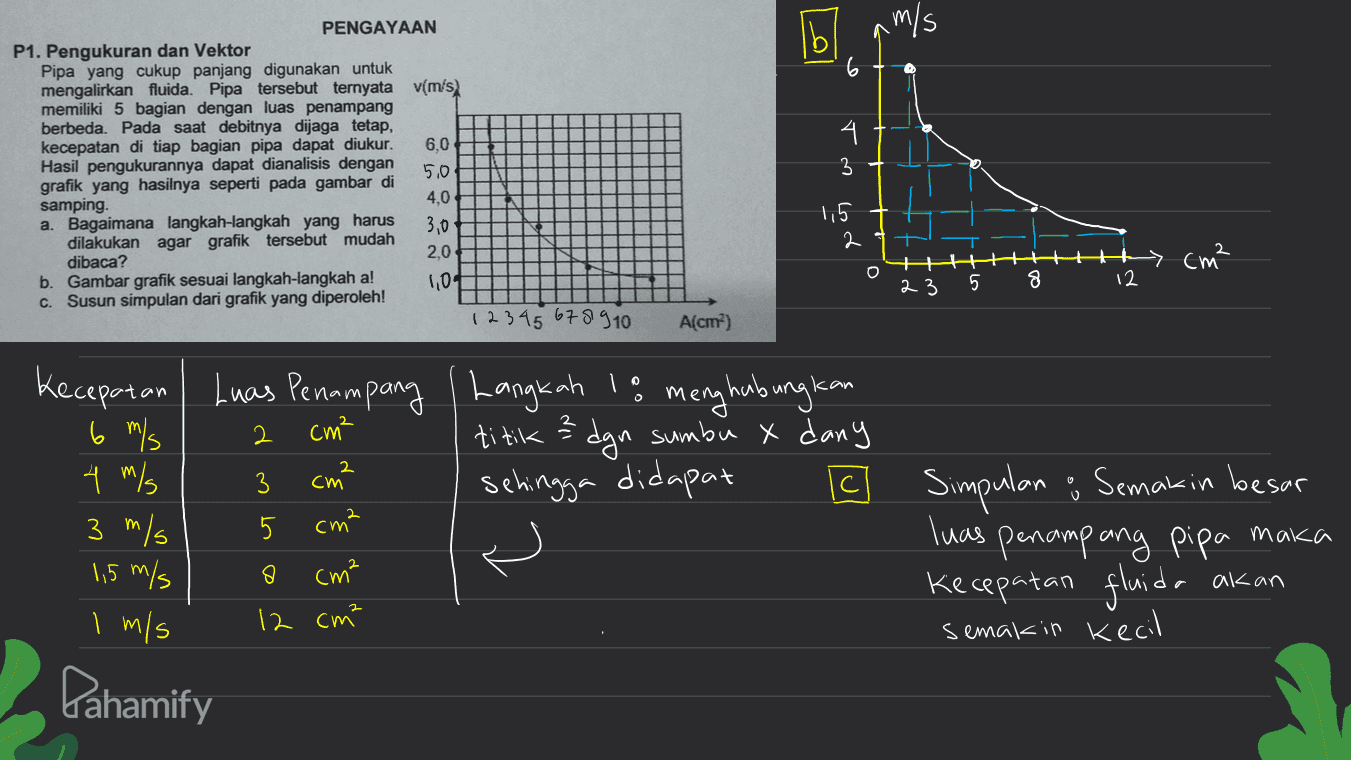 PENGAYAAN
P1. Pengukuran dan Vektor
Pipa yang cukup panjang digunakan untuk
mengalirkan fluida. Pipa tersebut ternyata
memiliki 5 bagian dengan luas penampang
berbeda. Pada saat debitnya dijaga tetap,
kecepatan di tiap bagian pipa dapat diukur.
Hasil pengukurannya dapat dianalisis dengan
grafik yang hasilnya seperti pada gambar di
samping.
a. Bagaimana langkah-langkah yang harus
dilakukan agar grafik tersebut mudah
dibaca?
b. Gambar grafik sesuai langkah-langkah a!
c. Susun simpulan dari grafik yang diperoleh!
v(m/s)
6,0
5,0
4,0
3,0
2,0
1,0
1 2 3 4 5 6 7 8 9 10 A(cm²)
b
m/s
6
4
3
1,5
2
0 2 3 5 8 12 cm²
Kecepatan Luas Penampang
6 m/s 2 cm²
4 m/s 3 cm²
3 m/s 5 cm²
1,5 m/s 8 cm²
1 m/s 12 cm²
Langkah 1 : menghubungkan
titik ² dgn sumbu x dan y
sehingga didapat
c Simpulan : Semakin besar
luas penampang pipa maka
kecepatan fluida akan
semakin kecil
Pahamify